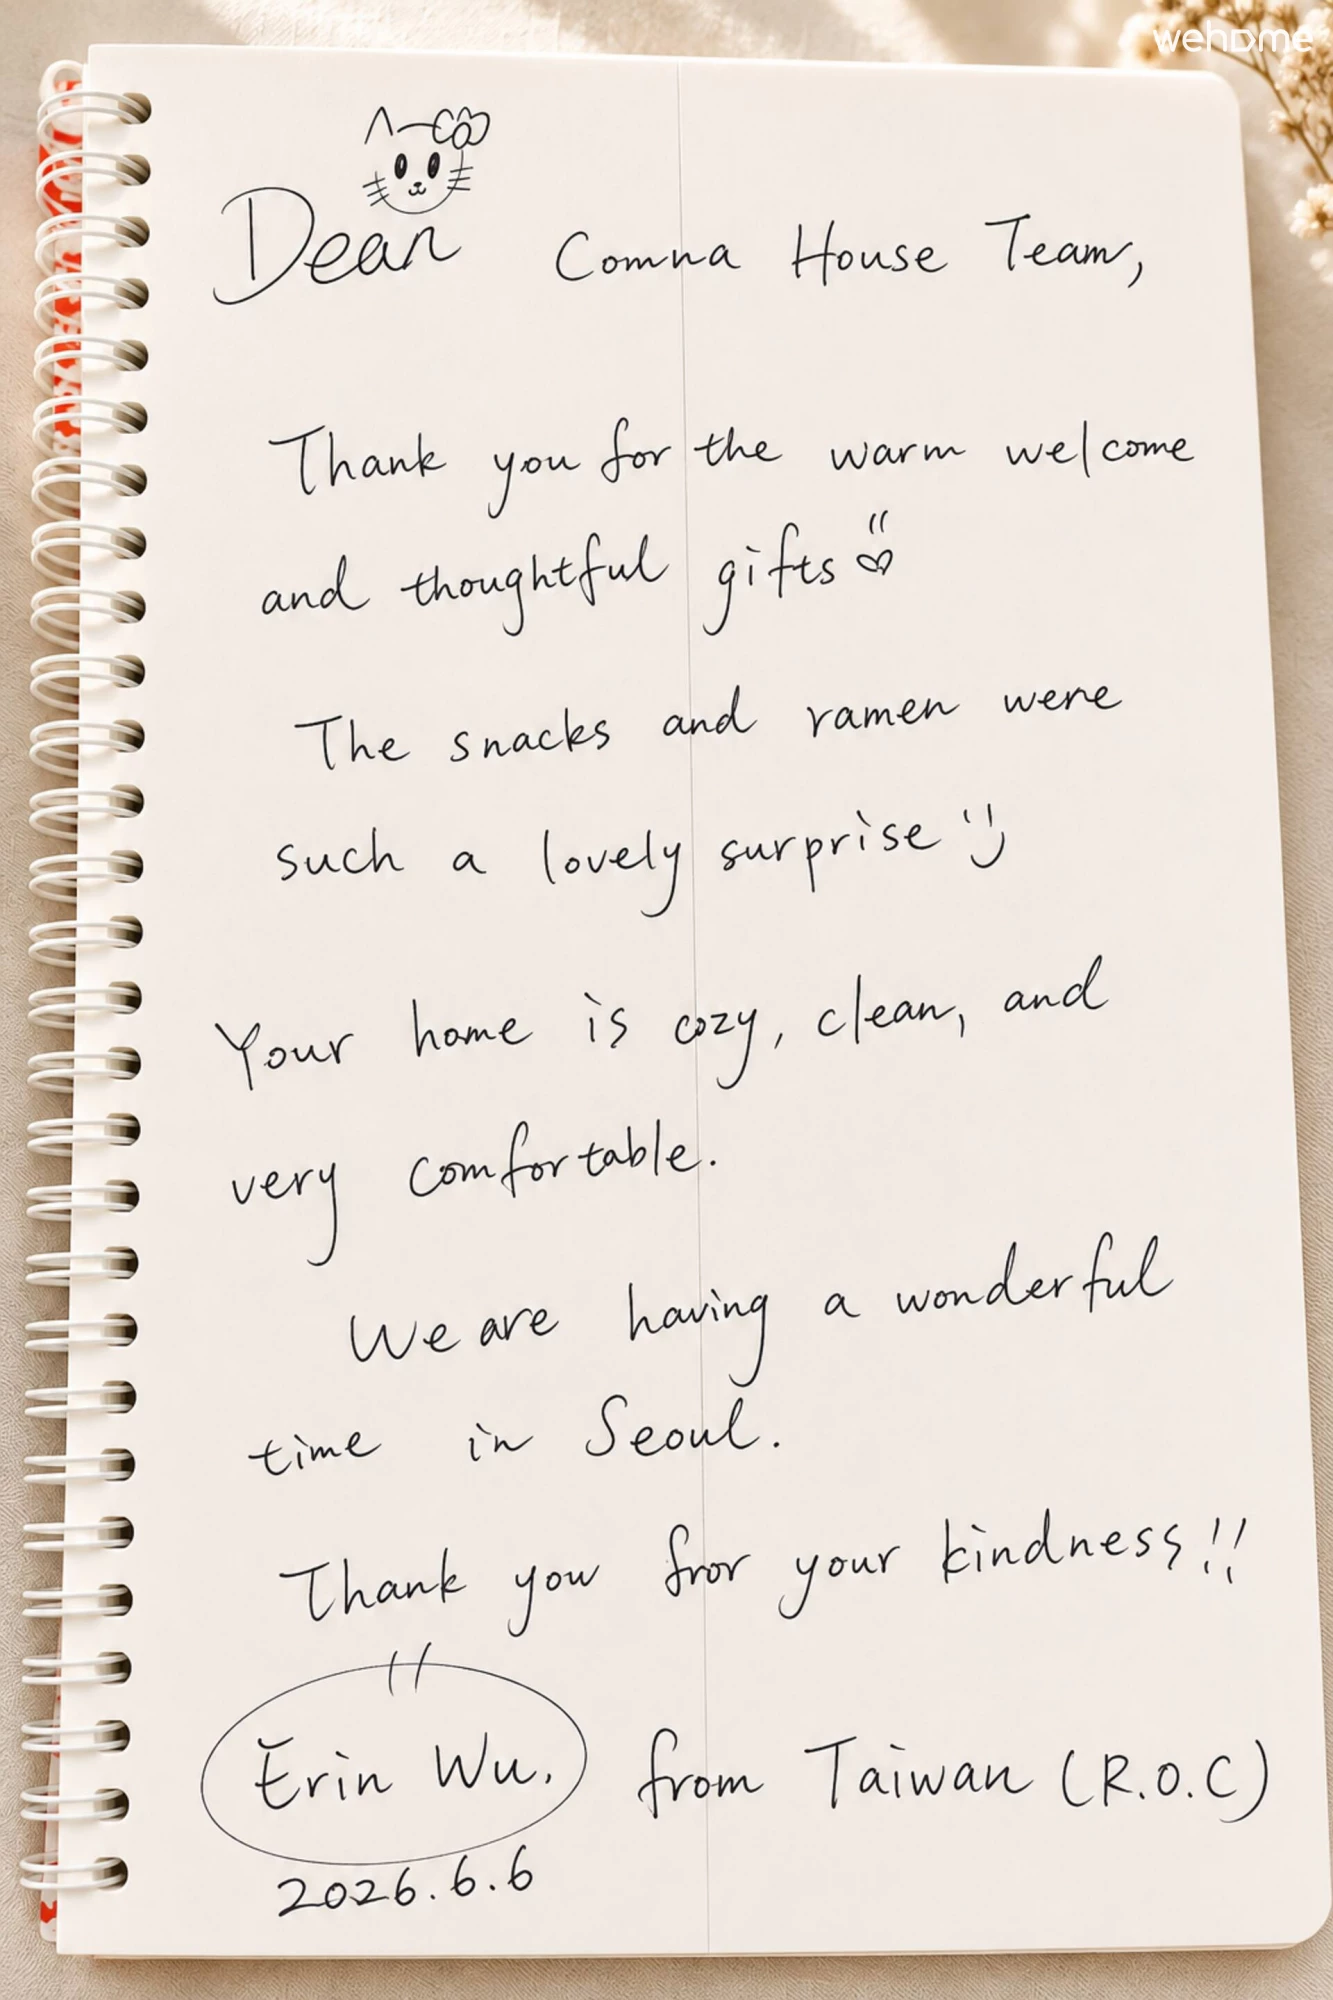 wehome
Dear Comna House Team,
Thank you for the warm welcome
and thoughtful gifts
The snacks and ramen were
such a lovely surprise
Your home is cozy, clean, and
very comfortable.
We are having a wonderful
time in Seoul.
Thank you fror your kindness!!
Erin Wu. from Taiwan (R.O.C)
2026.6.6